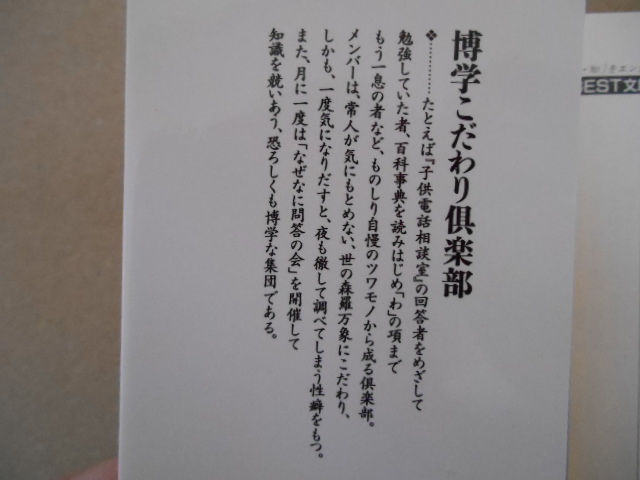 博学こだわり倶楽部
❖…………たとえば『子供電話相談室』の回答者をめざして
勉強していた者、百科事典を読みはじめ「わ」の項まで
もう一息の者など、ものしり自慢のツワモノから成る倶楽部。
メンバーは、常人が気にもとめない、世の森羅万象にこだわり、
しかも、一度気になりだすと、夜も徹して調べてしまう性癖をもつ。
また、月に一度は「なぜなに問答の会」を開催して
知識を競いあう、恐ろしくも博学な集団である。
EST文